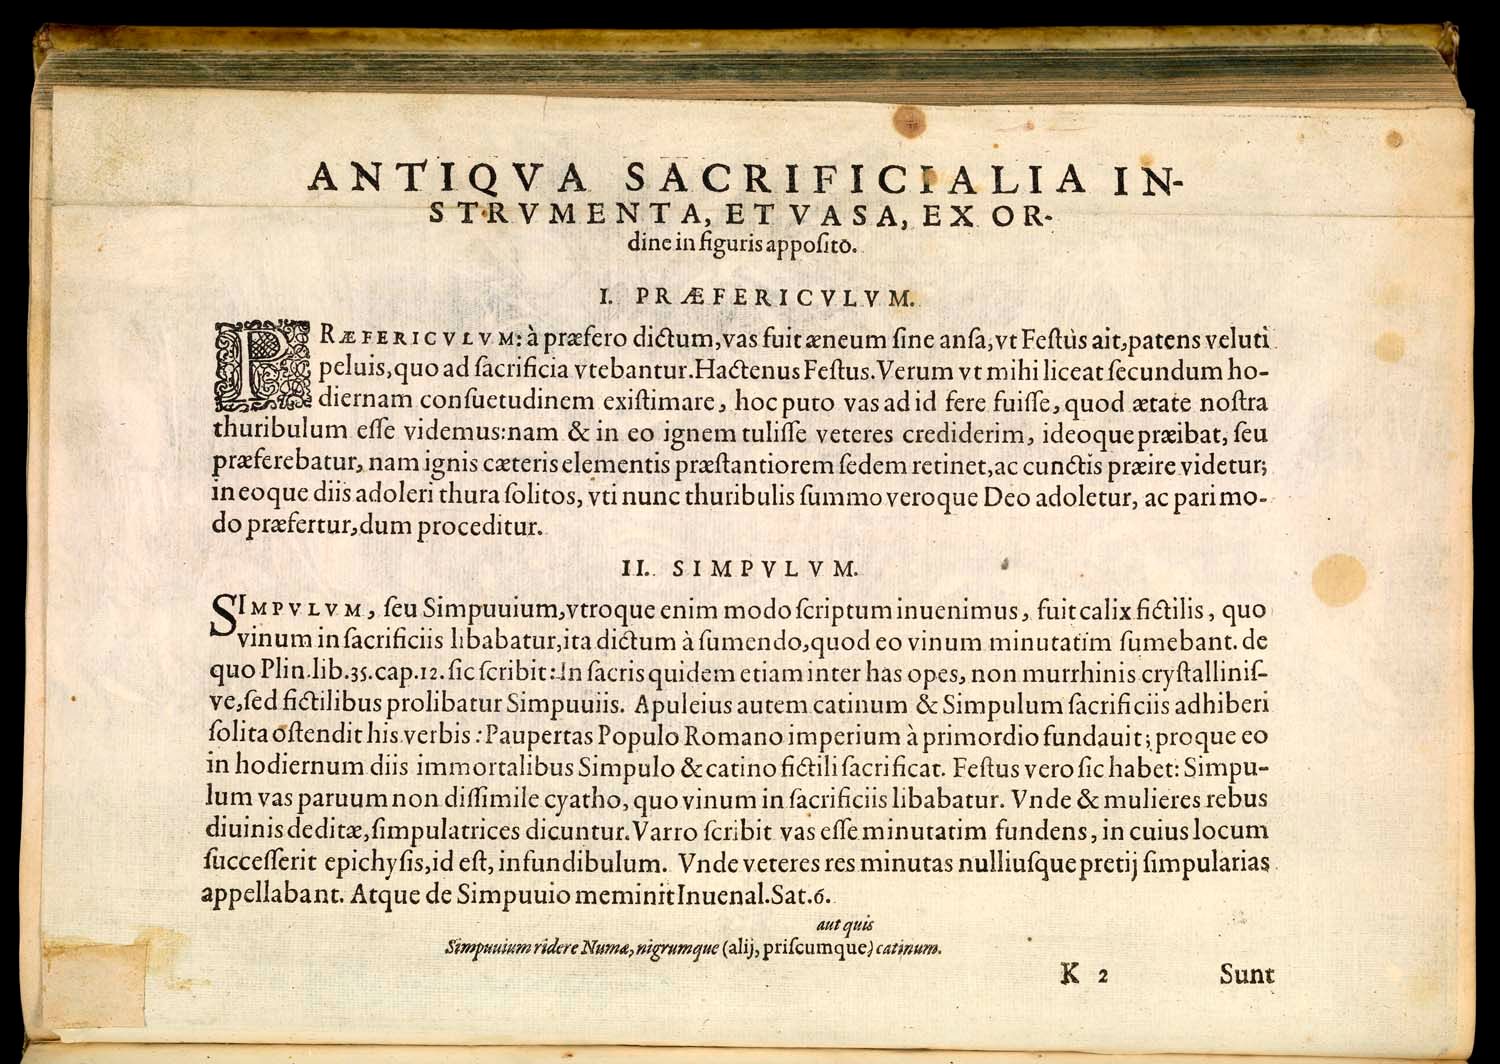 ANTIQVA SACRIFICIALIA IN-
STRVMENTA, ET VASA, EX OR-
dine in figuris appoſito.
I. PRÆFERICVLVM.
PRÆFERICVLVM: à præfero dictum, vas fuit æneum ſine anſa, vt Feſtus ait, patens veluti
peluis, quo ad ſacrificia vtebantur. Hactenus Feſtus. Verum vt mihi liceat ſecundum ho-
diernam conſuetudinem exiſtimare, hoc puto vas ad id fere fuiſſe, quod ætate noſtra
thuribulum eſſe videmus: nam & in eo ignem tuliſſe veteres crediderim, ideoque præibat, ſeu
præferebatur, nam ignis cæteris elementis præſtantiorem ſedem retinet, ac cunctis præire videtur;
in eoque diis adoleri thura ſolitos, vti nunc thuribulis ſummo veroque Deo adoletur, ac pari mo-
do præfertur, dum proceditur.
II. SIMPVLVM.
SIMPVLVM, ſeu Simpuuium, vtroque enim modo ſcriptum inuenimus, fuit calix fictilis, quo
vinum in ſacrificiis libabatur, ita dictum à ſumendo, quod eo vinum minutatim ſumebant. de
quo Plin. lib. 35. cap. 12. ſic ſcribit: In ſacris quidem etiam inter has opes, non murrhinis cryſtalliniſ-
ve, ſed fictilibus prolibatur Simpuuiis. Apuleius autem catinum & Simpulum ſacrificiis adhiberi
ſolita oſtendit his verbis: Paupertas Populo Romano imperium à primordio fundauit; proque eo
in hodiernum diis immortalibus Simpulo & catino fictili ſacrificat. Feſtus vero ſic habet: Simpu-
lum vas paruum non diſſimile cyatho, quo vinum in ſacrificiis libabatur. Vnde & mulieres rebus
diuinis deditæ, ſimpulatrices dicuntur. Varro ſcribit vas eſſe minutatim fundens, in cuius locum
ſucceſſerit epichyſis, id eſt, infundibulum. Vnde veteres res minutas nulliuſque pretij ſimpularias
appellabant. Atque de Simpuuio meminit Inuenal. Sat. 6.
aut quis
Simpuuium ridere Numæ, nigrumque (alij, priſcumque) catinum.
K 2 Sunt